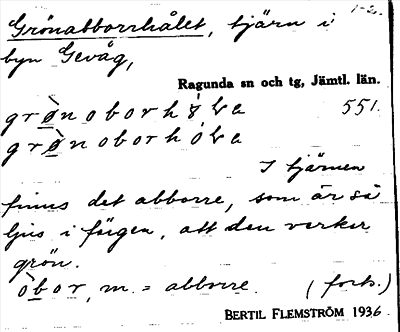 1-2.
Grönabborrhålet, tjärn i
byn Gevåg,
Ragunda sn och tg, Jämtl. län.
551.
I tjärnen
finns det abborre, som är så
ljus i färgen, att den verkar
grön.
òbor, m. = abborre. (forts.)
BERTIL FLEMSTRÖM 1936